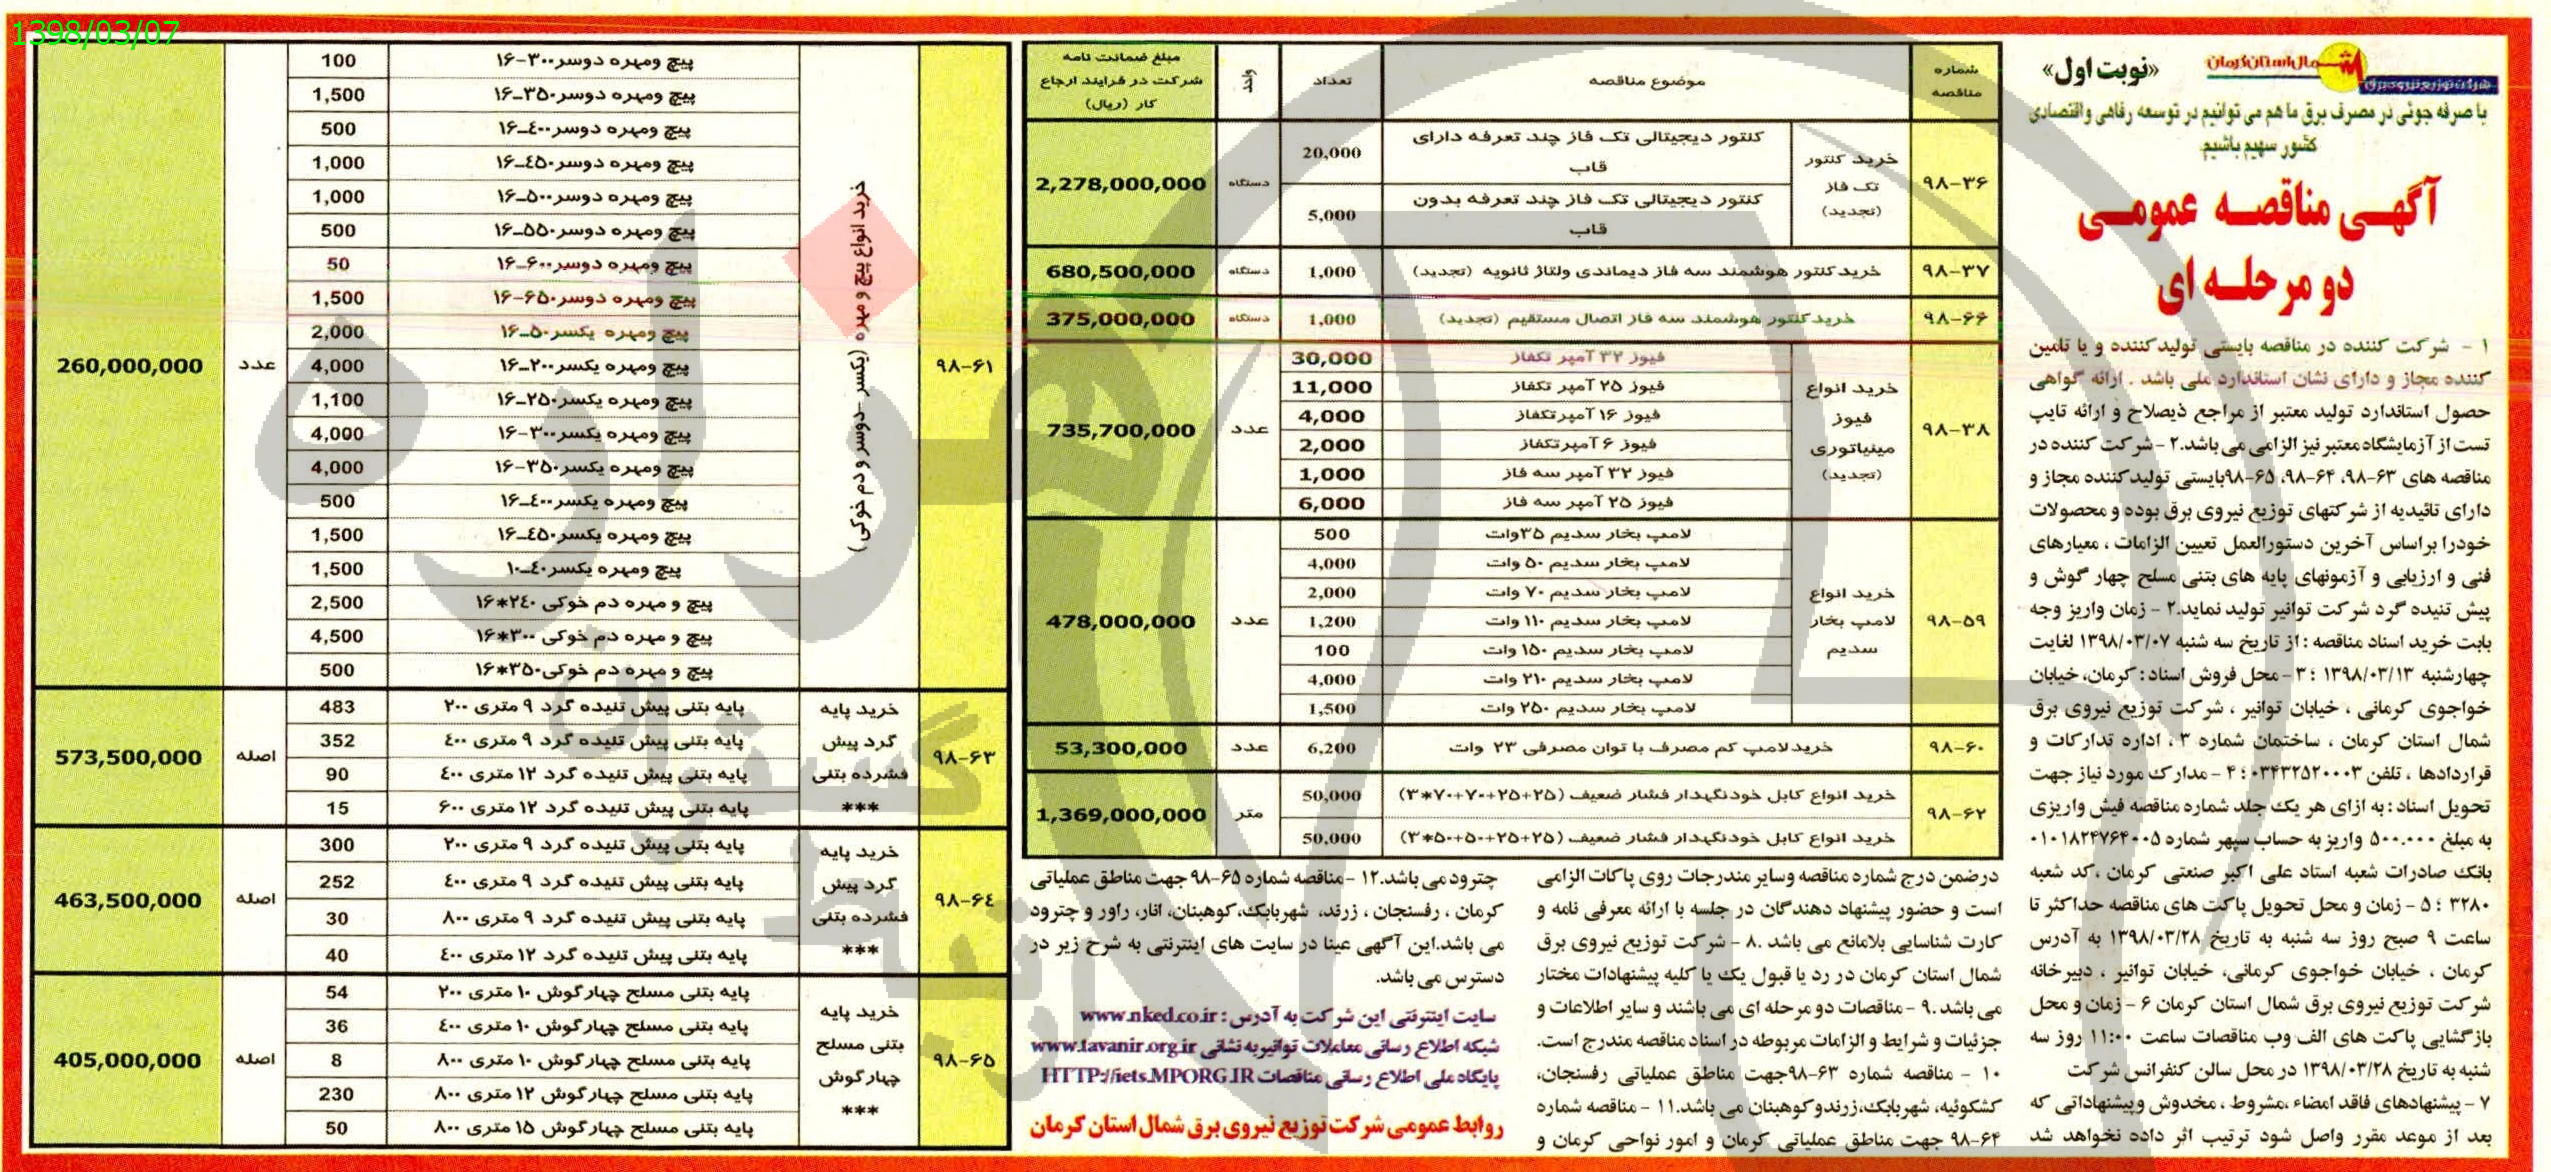 1398/03/07
«نوبت اول»
شمال استان کرمان
شرکت توزیع نیروی برق
با صرفه جوئی در مصرف برق ما هم می توانیم در توسعه رفاهی واقتصادی
کشور سهیم باشیم.
آگهی مناقصه عمومی
دو مرحله ای
۱ - شرکت کننده در مناقصه بایستی تولیدکننده و یا تامین
کننده مجاز و دارای نشان استاندارد ملی باشد . ارائه گواهی
حصول استاندارد تولید معتبر از مراجع ذیصلاح و ارائه تایپ
تست از آزمایشگاه معتبر نیز الزامی می باشد.۲ - شرکت کننده در
مناقصه های ۶۳-۹۸، ۶۴-۹۸، ۶۵-۹۸بایستی تولیدکننده مجاز و
دارای تائیدیه از شرکتهای توزیع نیروی برق بوده و محصولات
خودرا براساس آخرین دستورالعمل تعیین الزامات ، معیارهای
فنی و ارزیابی و آزمونهای پایه های بتنی مسلح چهار گوش و
پیش تنیده گرد شرکت توانیر تولید نماید.۲ - زمان واریز وجه
بابت خرید اسناد مناقصه : از تاریخ سه شنبه ۱۳۹۸/۰۳/۰۷ لغایت
چهارشنبه ۱۳۹۸/۰۳/۱۳ ؛ ۳ - محل فروش اسناد : کرمان، خیابان
خواجوی کرمانی ، خیابان توانیر ، شرکت توزیع نیروی برق
شمال استان کرمان ، ساختمان شماره ۳ ، اداره تدارکات و
قراردادها ، تلفن ۰۳۴۳۲۵۲۰۰۰۳ ؛ ۴ - مدارک مورد نیاز جهت
تحویل اسناد : به ازای هر یک جلد شماره مناقصه فیش واریزی
به مبلغ ۵۰۰.۰۰۰ واریز به حساب سپهر شماره ۰۱۰۱۸۲۴۷۶۴۰۰۵
بانک صادرات شعبه استاد علی اکبر صنعتی کرمان ،کد شعبه
۳۲۸۰ ؛ ۵ - زمان و محل تحویل پاکت های مناقصه حداکثر تا
ساعت ۹ صبح روز سه شنبه به تاریخ ۱۳۹۸/۰۳/۲۸ به آدرس
کرمان ، خیابان خواجوی کرمانی، خیابان توانیر ، دبیرخانه
شرکت توزیع نیروی برق شمال استان کرمان ۶ - زمان و محل
بازگشایی پاکت های الف وب مناقصات ساعت ۱۱:۰۰ روز سه
شنبه به تاریخ ۱۳۹۸/۰۳/۲۸ در محل سالن کنفرانس شرکت
۷ - پیشنهادهای فاقد امضاء ،مشروط ، مخدوش وپیشنهاداتی که
بعد از موعد مقرر واصل شود ترتیب اثر داده نخواهد شد
شماره مناقصه | موضوع مناقصه | تعداد | واحد | مبلغ ضمانت نامه شرکت در فرایند ارجاع کار (ریال)
۹۸-۳۶ | خرید کنتور تک فاز (تجدید) | کنتور دیجیتالی تک فاز چند تعرفه دارای قاب | 20,000 | دستگاه | 2,278,000,000
کنتور دیجیتالی تک فاز چند تعرفه بدون قاب | 5,000
۹۸-۳۷ | خرید کنتور هوشمند سه فاز دیماندی ولتاژ ثانویه (تجدید) | 1,000 | دستگاه | 680,500,000
۹۸-۶۶ | خرید کنتور هوشمند سه فاز اتصال مستقیم (تجدید) | 1,000 | دستگاه | 375,000,000
۹۸-۳۸ | خرید انواع فیوز مینیاتوری (تجدید) | فیوز ۳۲ آمپر تکفاز | 30,000 | عدد | 735,700,000
فیوز ۲۵ آمپر تکفاز | 11,000
فیوز ۱۶ آمپرتکفاز | 4,000
فیوز ۶ آمپرتکفاز | 2,000
فیوز ۳۲ آمپر سه فاز | 1,000
فیوز ۲۵ آمپر سه فاز | 6,000
۹۸-۵۹ | خرید انواع لامپ بخار سدیم | لامپ بخار سدیم ۳۵وات | 500 | عدد | 478,000,000
لامپ بخار سدیم ۵۰ وات | 4,000
لامپ بخار سدیم ۷۰ وات | 2,000
لامپ بخار سدیم ۱۱۰ وات | 1,200
لامپ بخار سدیم ۱۵۰ وات | 100
لامپ بخار سدیم ۲۱۰ وات | 4,000
لامپ بخار سدیم ۲۵۰ وات | 1,500
۹۸-۶۰ | خرید لامپ کم مصرف با توان مصرفی ۲۳ وات | 6,200 | عدد | 53,300,000
۹۸-۶۲ | خرید انواع کابل خودنگهدار فشار ضعیف (۲۵+۲۵+۷۰+۷۰*۳) | 50,000 | متر | 1,369,000,000
خرید انواع کابل خودنگهدار فشار ضعیف (۲۵+۲۵+۵۰+۵۰*۳) | 50,000
درضمن درج شماره مناقصه وسایر مندرجات روی پاکات الزامی
است و حضور پیشنهاد دهندگان در جلسه با ارائه معرفی نامه و
کارت شناسایی بلامانع می باشد .۸ - شرکت توزیع نیروی برق
شمال استان کرمان در رد یا قبول یک یا کلیه پیشنهادات مختار
می باشد .۹ - مناقصات دو مرحله ای می باشند و سایر اطلاعات و
جزئیات و شرایط و الزامات مربوطه در اسناد مناقصه مندرج است.
۱۰ - مناقصه شماره ۶۳-۹۸جهت مناطق عملیاتی رفسنجان،
کشکوئیه، شهربابک،زرندوکوهبنان می باشد.۱۱ - مناقصه شماره
۹۸-۶۴ جهت مناطق عملیاتی کرمان و امور نواحی کرمان و
چترود می باشد.۱۲ -مناقصه شماره ۶۵-۹۸ جهت مناطق عملیاتی
کرمان ، رفسنجان ، زرند، شهربابک،کوهبنان، انار، راور و چترود
می باشد.این آگهی عینا در سایت های اینترنتی به شرح زیر در
دسترس می باشد.
سایت اینترنتی این شرکت به آدرس : www.nked.co.ir
شبکه اطلاع رسانی معاملات توانیربه نشانی www.tavanir.org.ir
پایگاه ملی اطلاع رسانی مناقصات HTTP://iets.MPORG.IR
روابط عمومی شرکت توزیع نیروی برق شمال استان کرمان
۹۸-۶۱ | خرید انواع پیچ و مهره (یکسر -دوسر و دم خوکی) | پیچ ومهره دوسر۳۰۰-۱۶ | 100 | عدد | 260,000,000
پیچ ومهره دوسر۳۵۰-۱۶ | 1,500
پیچ ومهره دوسر۴۰۰-۱۶ | 500
پیچ ومهره دوسر۴۵۰-۱۶ | 1,000
پیچ ومهره دوسر۵۰۰-۱۶ | 1,000
پیچ ومهره دوسر۵۵۰-۱۶ | 500
پیچ ومهره دوسر۶۰۰-۱۶ | 50
پیچ ومهره دوسر۶۵۰-۱۶ | 1,500
پیچ ومهره یکسر۵۰-۱۶ | 2,000
پیچ ومهره یکسر۲۰۰-۱۶ | 4,000
پیچ ومهره یکسر۲۵۰-۱۶ | 1,100
پیچ ومهره یکسر۳۰۰-۱۶ | 4,000
پیچ ومهره یکسر۳۵۰-۱۶ | 4,000
پیچ ومهره یکسر۴۰۰-۱۶ | 500
پیچ ومهره یکسر۴۵۰-۱۶ | 1,500
پیچ ومهره یکسر۴۰-۱۰ | 1,500
پیچ و مهره دم خوکی ۲۴۰*۱۶ | 2,500
پیچ و مهره دم خوکی ۳۰۰*۱۶ | 4,500
پیچ و مهره دم خوکی۳۵۰*۱۶ | 500
۹۸-۶۳ | خرید پایه گرد پیش فشرده بتنی *** | پایه بتنی پیش تنیده گرد ۹ متری ۲۰۰ | 483 | اصله | 573,500,000
پایه بتنی پیش تنیده گرد ۹ متری ۴۰۰ | 352
پایه بتنی پیش تنیده گرد ۱۲ متری ۴۰۰ | 90
پایه بتنی پیش تنیده گرد ۱۲ متری ۶۰۰ | 15
۹۸-۶۴ | خرید پایه گرد پیش فشرده بتنی *** | پایه بتنی پیش تنیده گرد ۹ متری ۲۰۰ | 300 | اصله | 463,500,000
پایه بتنی پیش تنیده گرد ۹ متری ۴۰۰ | 252
پایه بتنی پیش تنیده گرد ۹ متری ۸۰۰ | 30
پایه بتنی پیش تنیده گرد ۱۲ متری ۴۰۰ | 40
۹۸-۶۵ | خرید پایه بتنی مسلح چهارگوش *** | پایه بتنی مسلح چهارگوش ۱۰ متری ۲۰۰ | 54 | اصله | 405,000,000
پایه بتنی مسلح چهارگوش ۱۰ متری ۴۰۰ | 36
پایه بتنی مسلح چهارگوش ۱۰ متری ۸۰۰ | 8
پایه بتنی مسلح چهارگوش ۱۲ متری ۸۰۰ | 230
پایه بتنی مسلح چهارگوش ۱۵ متری ۸۰۰ | 50